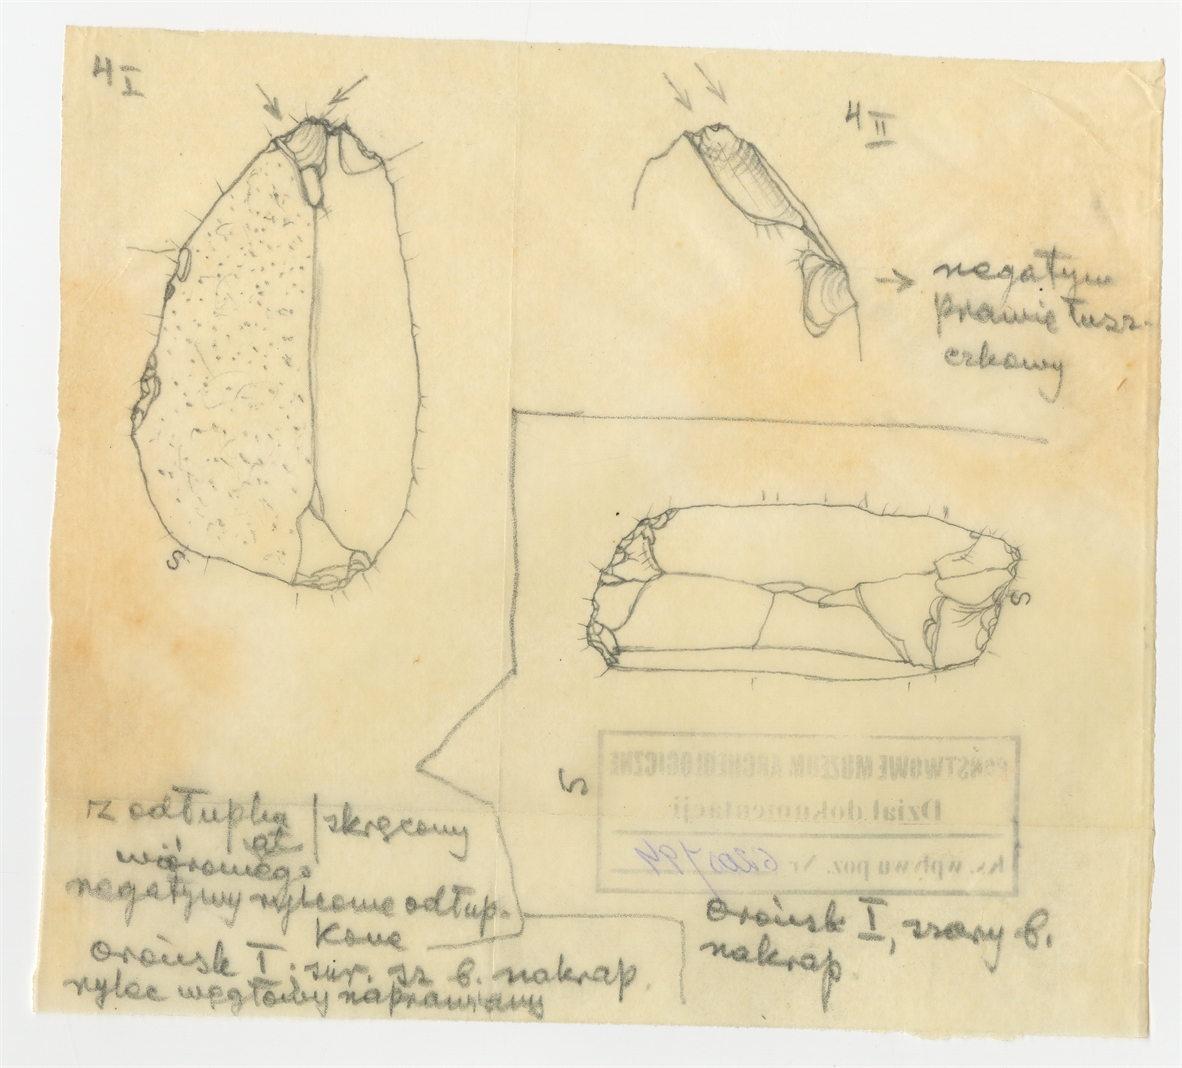 4 I
4 II
→ negatyw
prawie łusz-
czkowy
S
S
5
PAŃSTWOWE MUZEUM ARCHEOLOGICZNE
Dział dokumentacji
ks. wpływu poz. Nr
z odłupka / skręcony
wiórowego
negatywy rylcowe odłup-
kowe
Orońsk I. sur. sz b. nakrap.
rylec węgłowy naprawiany
Orońsk I, szary b.
nakrap.